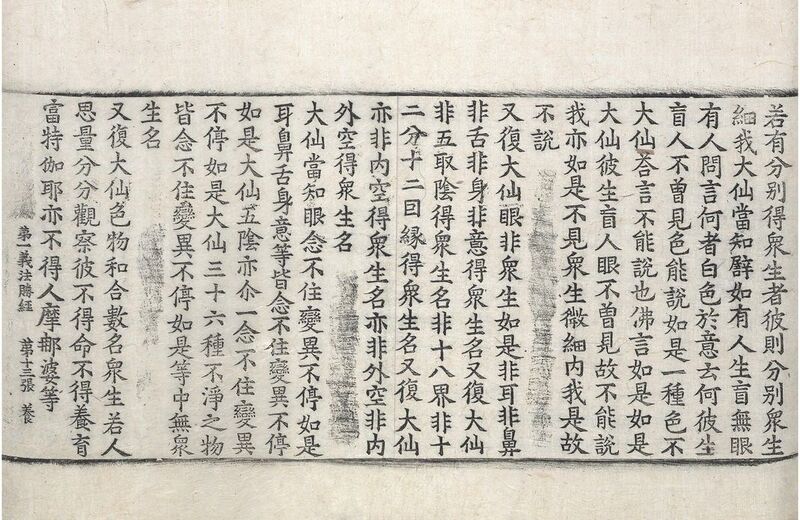 若有分別得衆生者彼則分別衆生
細我大仙當知譬如有人生盲無眼
有人問言何者白色於意云何彼生
盲人不曾見色能說如是一種色不
大仙荅言不能說也佛言如是如是
大仙彼生盲人眼不曾見故不能說
我亦如是不見衆生微細内我是故
不說
又復大仙眼非衆生如是非耳非鼻
非舌非身非意得衆生名又復大仙
非五取陰得衆生名非十八界非十
二分十二因緣得衆生名又復大仙
亦非内空得衆生名亦非外空非内
外空得衆生名
大仙當知眼念不住變異不停如是
耳鼻舌身意等皆念不住變異不停
如是大仙五陰亦尒一念不住變異
不停如是大仙三十六種不淨之物
皆念不住變異不停如是等中無衆
生名
又復大仙色物和合數名衆生若人
思量分分觀察彼不得命不得養育
富特伽耶亦不得人摩那婆等
第一義法勝經 第十三張 養